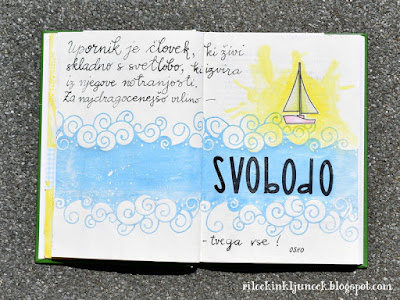 Upornik je človek, ki živi
skladno s svetlobo, ki izvira
iz njegove notranjosti.
Za najdragocenejšo vrlino —
SVOBODO
- tvega vse!
OSHO
rilcekinkljuncek.blogspot.com